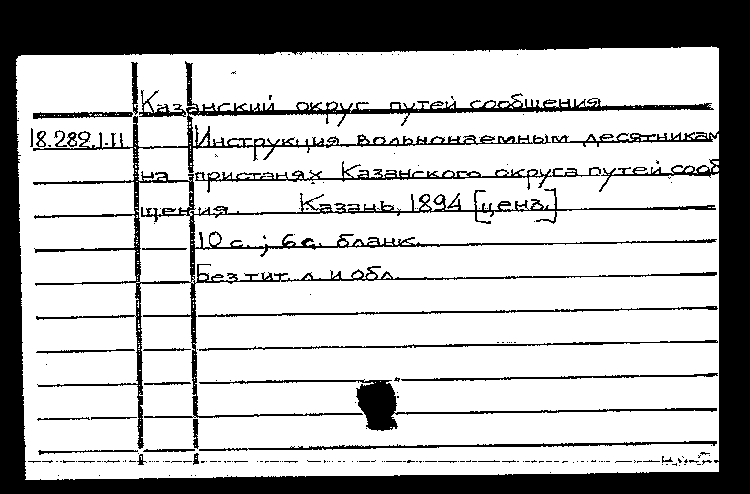 Казанский округ путей сообщения
18.282.1.11 Инструкция вольнонаемным десятникам
на пристанях Казанского округа путей сооб
щения. Казань, 1894 [ценз.]
10 с.; 6 с. бланк.
Без тит. л. и обл.